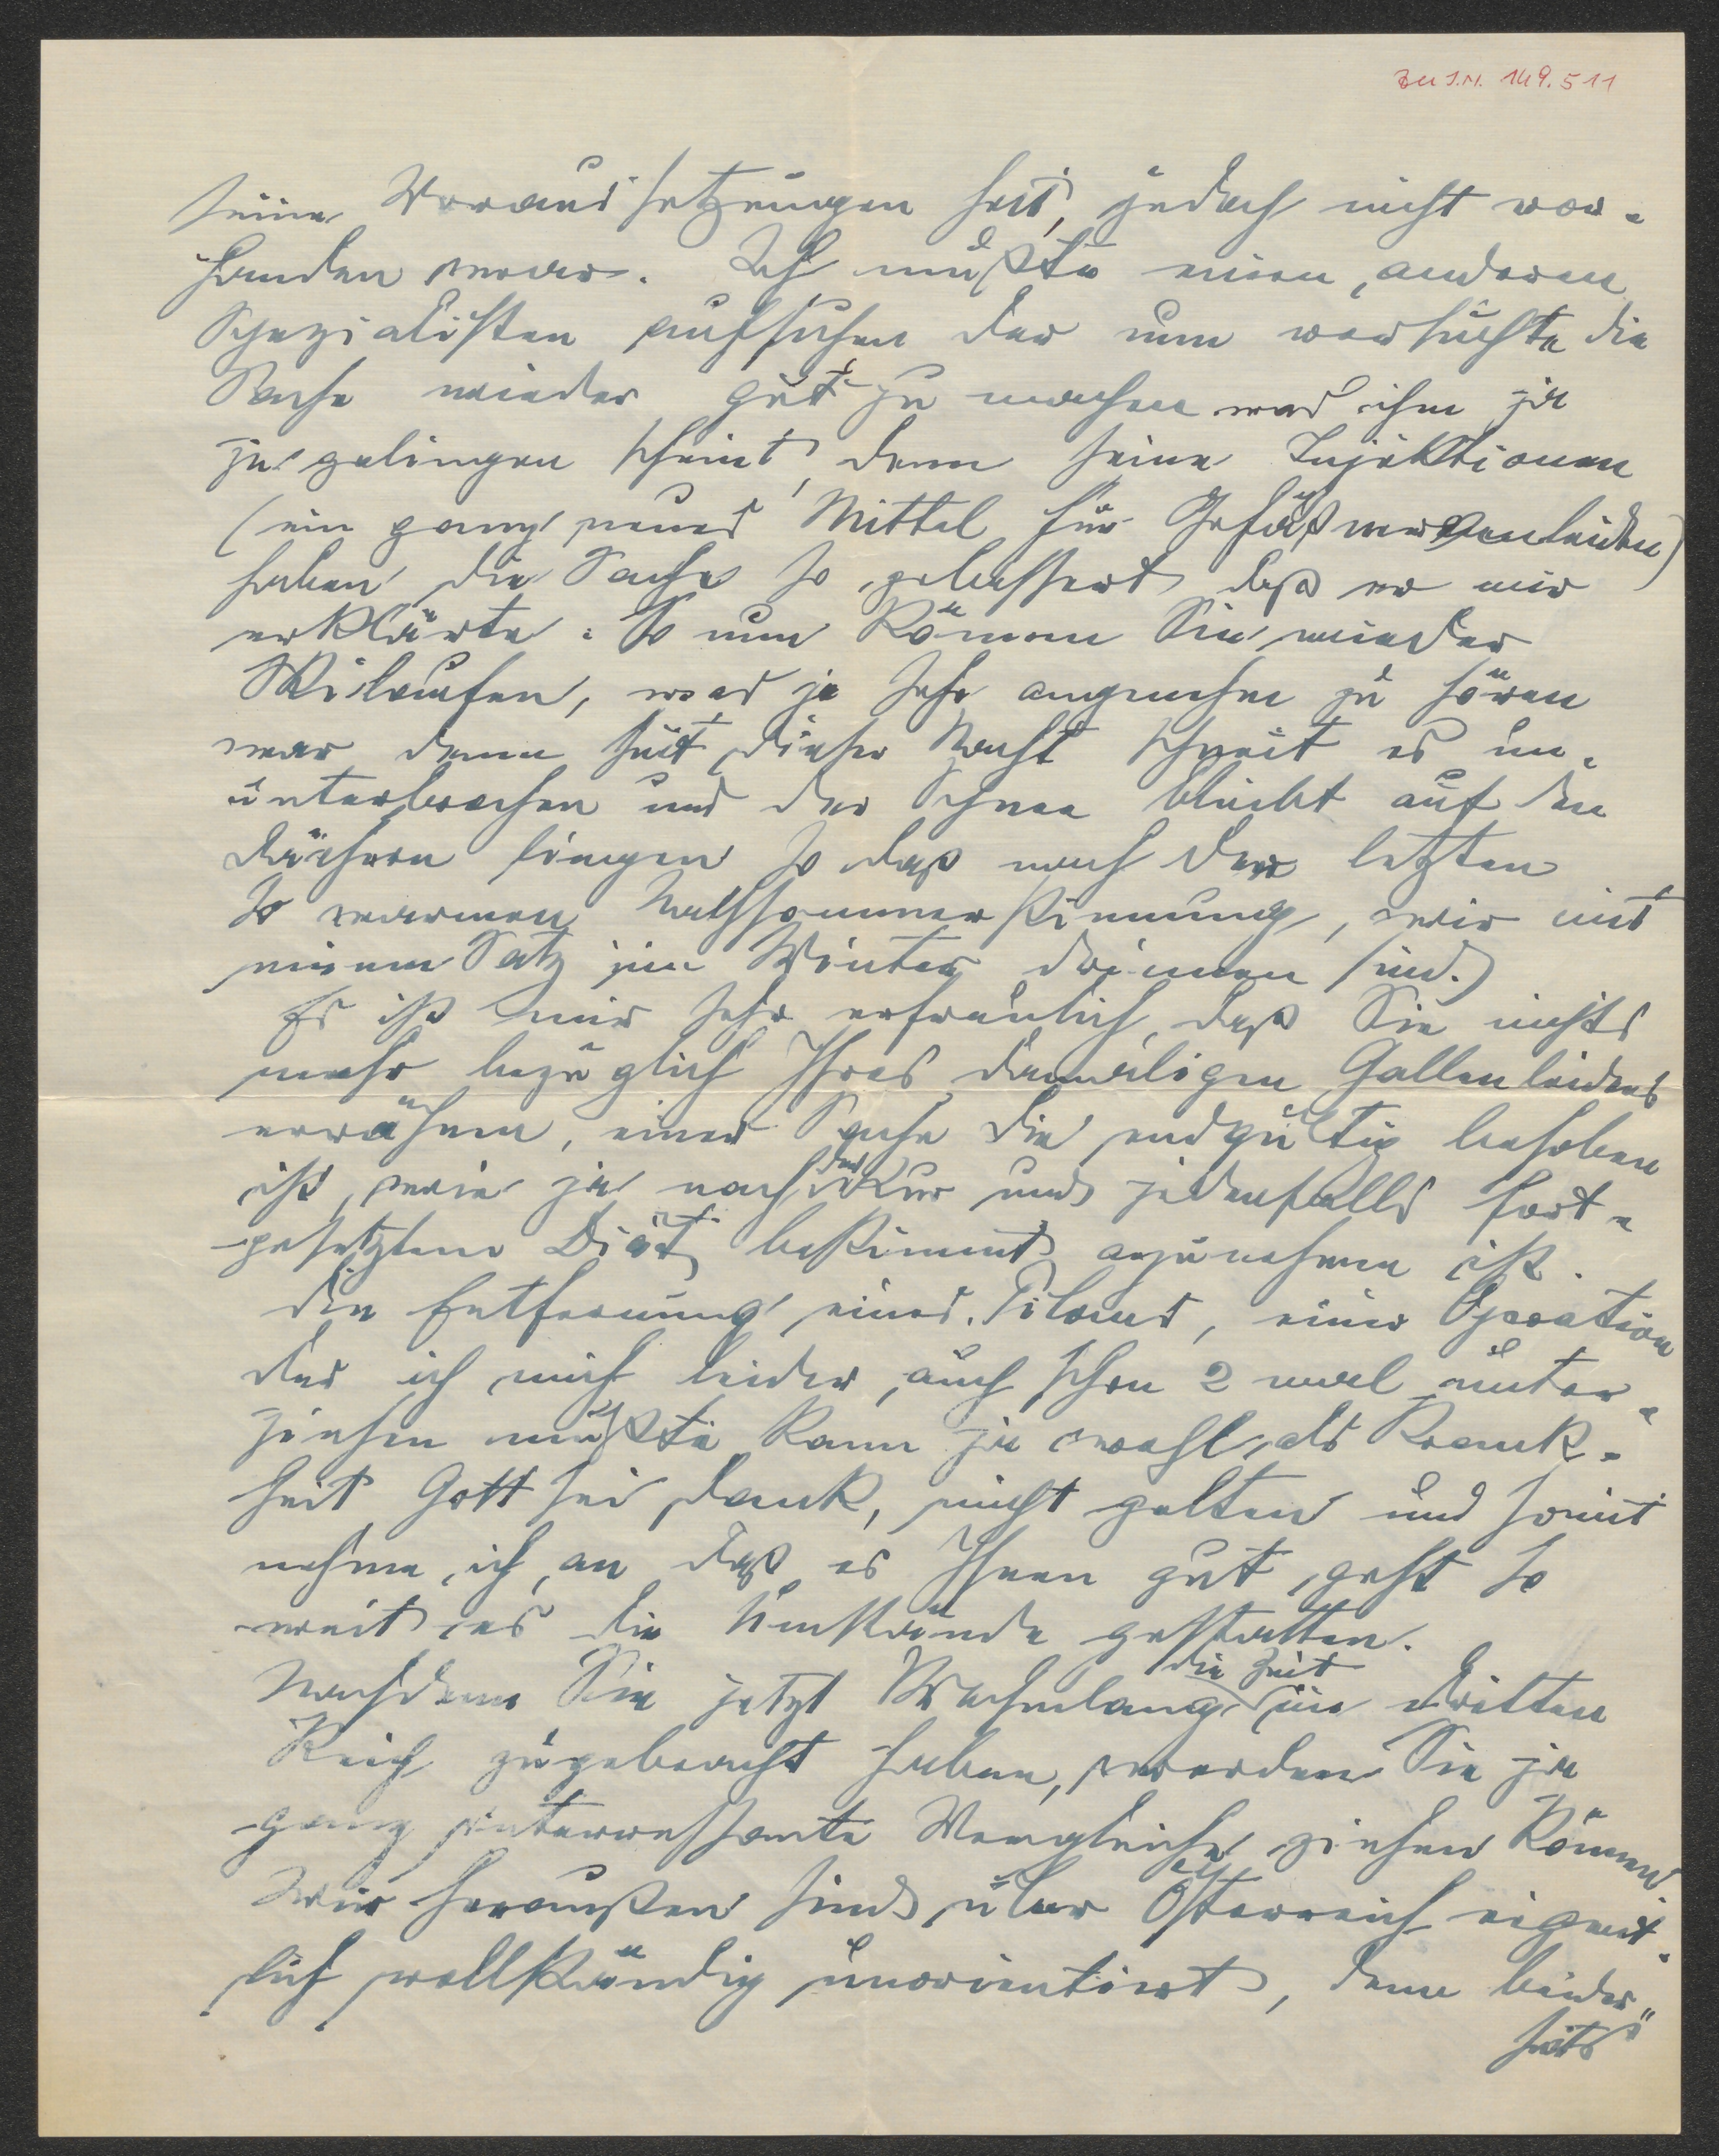 Zu I.N. 149.511
seine Voraussetzungen hat, jedoch nicht vor-
handen war. Ich mußte einen anderen
Spezialisten aufsuchen der nun versuchte die
Sache wieder gut zu machen was ihm ja
zu gelingen scheint, denn seine Injektionen
(ein ganz neues Mittel für Gefäßnervenleiden)
haben die Sache so gebessert daß er mir
erklärte: So nun können Sie wieder
Skilaufen, was ja sehr angenehm zu hören
war denn seit dieser Nacht schneit es un-
unterbrochen und der Schnee bleibt auf den
Dächern liegen so daß nach der letzten
so warmen Nachsommerstimmung, wir mit
einem Satz im Winter drinnen sind.)
Es ist mir sehr erfreulich, daß Sie nichts
mehr bezüglich Ihres damaligen Gallenleidens
erwähnen, einer Sache die endgültig behoben
ist, wie ja nach der Kur und jedenfalls fort-
gesetzten Diät bestimmt anzunehmen ist.
Die Entfernung eines, einer Operation
der ich mich leider auch schon 2 mal unter-
ziehen mußte kann ja wohl als Krank-
heit Gott sei Dank, nicht gelten und somit
nehme ich an daß es Ihnen gut geht so
weit es die Umstände gestatten.
Nachdem Sie jetzt Wochenlang die Zeit im dritten
Reich zugebracht haben, werden Sie ja
ganz interressante Vergleiche ziehen können.
Wir heraußen sind über Österreich eigent-
lich vollständig unorientiert, denn beider"
seits